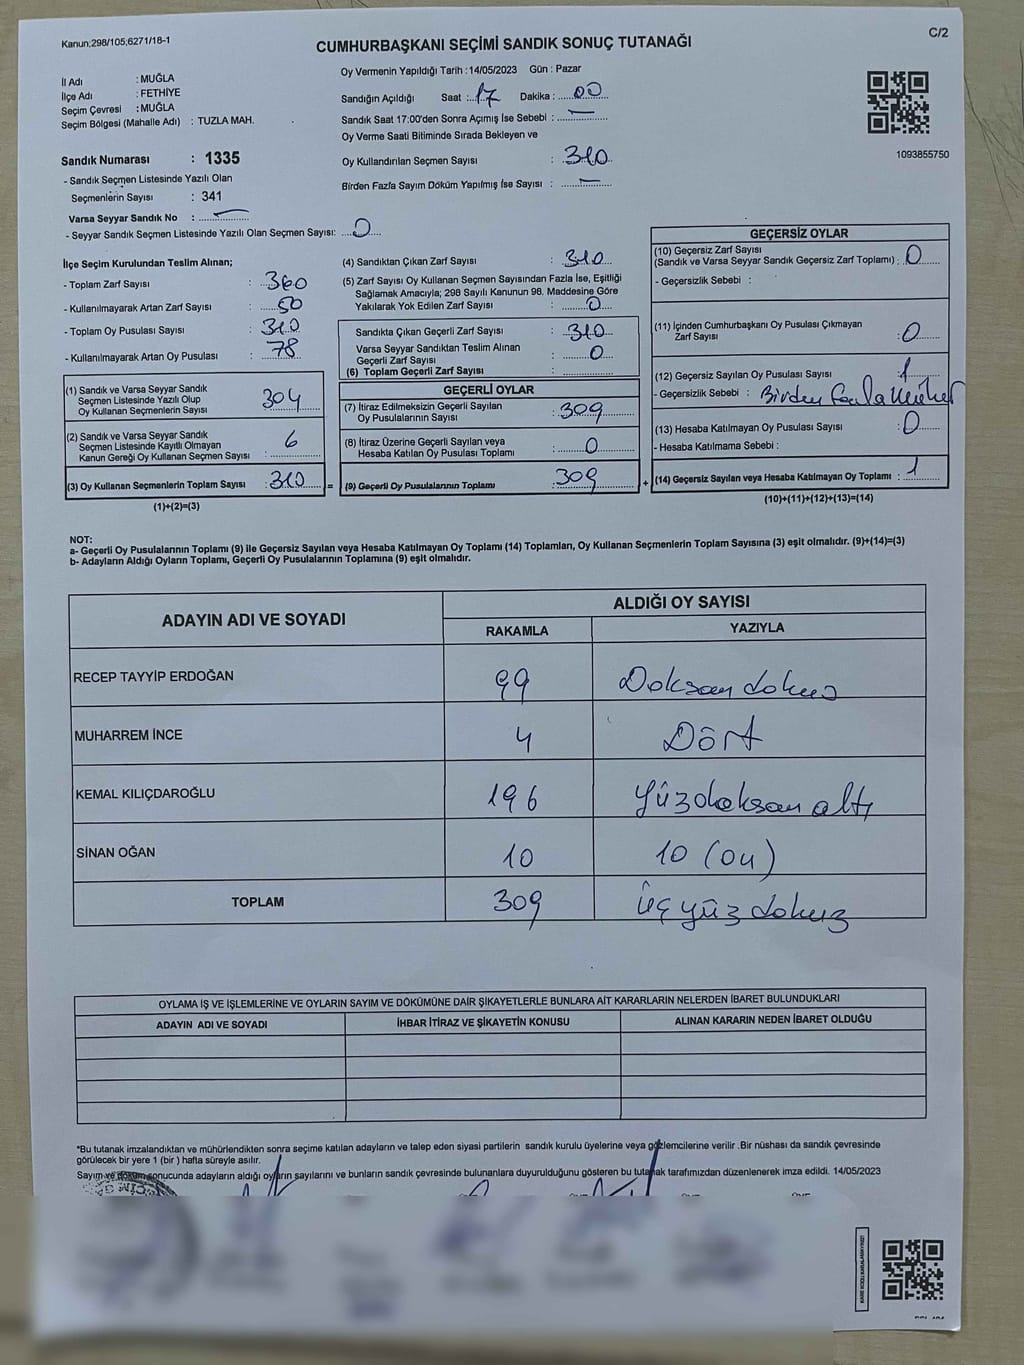 Kanun;298/105;6271/18-1
C/2
CUMHURBAŞKANI SEÇİMİ SANDIK SONUÇ TUTANAĞI
İl Adı : MUĞLA
İlçe Adı : FETHİYE
Seçim Çevresi : MUĞLA
Seçim Bölgesi (Mahalle Adı) : TUZLA MAH.
Sandık Numarası : 1335
- Sandık Seçmen Listesinde Yazılı Olan
Seçmenlerin Sayısı : 341
Varsa Seyyar Sandık No : —
- Seyyar Sandık Seçmen Listesinde Yazılı Olan Seçmen Sayısı: 0
Oy Vermenin Yapıldığı Tarih : 14/05/2023 Gün : Pazar
Sandığın Açıldığı Saat : 17 Dakika : 00
Sandık Saat 17:00'den Sonra Açmış İse Sebebi : —
Oy Verme Saati Bitiminde Sırada Bekleyen ve
Oy Kullandırılan Seçmen Sayısı : 310
Birden Fazla Sayım Döküm Yapılmış İse Sayısı : —
1093855750
İlçe Seçim Kurulundan Teslim Alınan;
- Toplam Zarf Sayısı : 360
- Kullanılmayarak Artan Zarf Sayısı : 50
- Toplam Oy Pusulası Sayısı : 310
- Kullanılmayarak Artan Oy Pusulası : 78
(1) Sandık ve Varsa Seyyar Sandık
Seçmen Listesinde Yazılı Olup
Oy Kullanan Seçmenlerin Sayısı : 304
(2) Sandık ve Varsa Seyyar Sandık
Seçmen Listesinde Kayıtlı Olmayan
Kanun Gereği Oy Kullanan Seçmen Sayısı : 6
(3) Oy Kullanan Seçmenlerin Toplam Sayısı : 310 =
(1)+(2)=(3)
(4) Sandıktan Çıkan Zarf Sayısı : 310
(5) Zarf Sayısı Oy Kullanan Seçmen Sayısından Fazla İse, Eşitliği
Sağlamak Amacıyla; 298 Sayılı Kanunun 98. Maddesine Göre
Yakılarak Yok Edilen Zarf Sayısı : 0
Sandıkta Çıkan Geçerli Zarf Sayısı : 310
Varsa Seyyar Sandıktan Teslim Alınan
Geçerli Zarf Sayısı : 0
(6) Toplam Geçerli Zarf Sayısı :
GEÇERLİ OYLAR
(7) İtiraz Edilmeksizin Geçerli Sayılan
Oy Pusulalarının Sayısı : 309
(8) İtiraz Üzerine Geçerli Sayılan veya
Hesaba Katılan Oy Pusulası Toplamı : 0
(9) Geçerli Oy Pusulalarının Toplamı : 309 +
GEÇERSİZ OYLAR
(10) Geçersiz Zarf Sayısı
(Sandık ve Varsa Seyyar Sandık Geçersiz Zarf Toplamı) : 0
- Geçersizlik Sebebi :
(11) İçinden Cumhurbaşkanı Oy Pusulası Çıkmayan
Zarf Sayısı : 0
(12) Geçersiz Sayılan Oy Pusulası Sayısı : 1
- Geçersizlik Sebebi : Birden fazla Mühür
(13) Hesaba Katılmayan Oy Pusulası Sayısı : 0
- Hesaba Katılmama Sebebi :
(14) Geçersiz Sayılan veya Hesaba Katılmayan Oy Toplamı : 1
(10)+(11)+(12)+(13)=(14)
NOT:
a- Geçerli Oy Pusulalarının Toplamı (9) ile Geçersiz Sayılan veya Hesaba Katılmayan Oy Toplamı (14) Toplamları, Oy Kullanan Seçmenlerin Toplam Sayısına (3) eşit olmalıdır. (9)+(14)=(3)
b- Adayların Aldığı Oyların Toplamı, Geçerli Oy Pusulalarının Toplamına (9) eşit olmalıdır.
ADAYIN ADI VE SOYADI ALDIĞI OY SAYISI
RAKAMLA YAZIYLA
RECEP TAYYİP ERDOĞAN 99 Doksan dokuz
MUHARREM İNCE 4 Dört
KEMAL KILIÇDAROĞLU 196 Yüzdoksan altı
SİNAN OĞAN 10 10 (on)
TOPLAM 309 üçyüz dokuz
OYLAMA İŞ VE İŞLEMLERİNE VE OYLARIN SAYIM VE DÖKÜMÜNE DAİR ŞİKAYETLERLE BUNLARA AİT KARARLARIN NELERDEN İBARET BULUNDUKLARI
ADAYIN ADI VE SOYADI İHBAR İTİRAZ VE ŞİKAYETİN KONUSU ALINAN KARARIN NEDEN İBARET OLDUĞU
*Bu tutanak imzalandıktan ve mühürlendikten sonra seçime katılan adayların ve talep eden siyasi partilerin sandık kurulu üyelerine veya gözlemcilerine verilir .Bir nüshası da sandık çevresinde
görülecek bir yere 1 (bir ) hafta süreyle asılır.
Sayım ve döküm sonucunda adayların aldığı oyların sayılarını ve bunların sandık çevresinde bulunanlara duyurulduğunu gösteren bu tutanak tarafımızdan düzenlenerek imza edildi. 14/05/2023